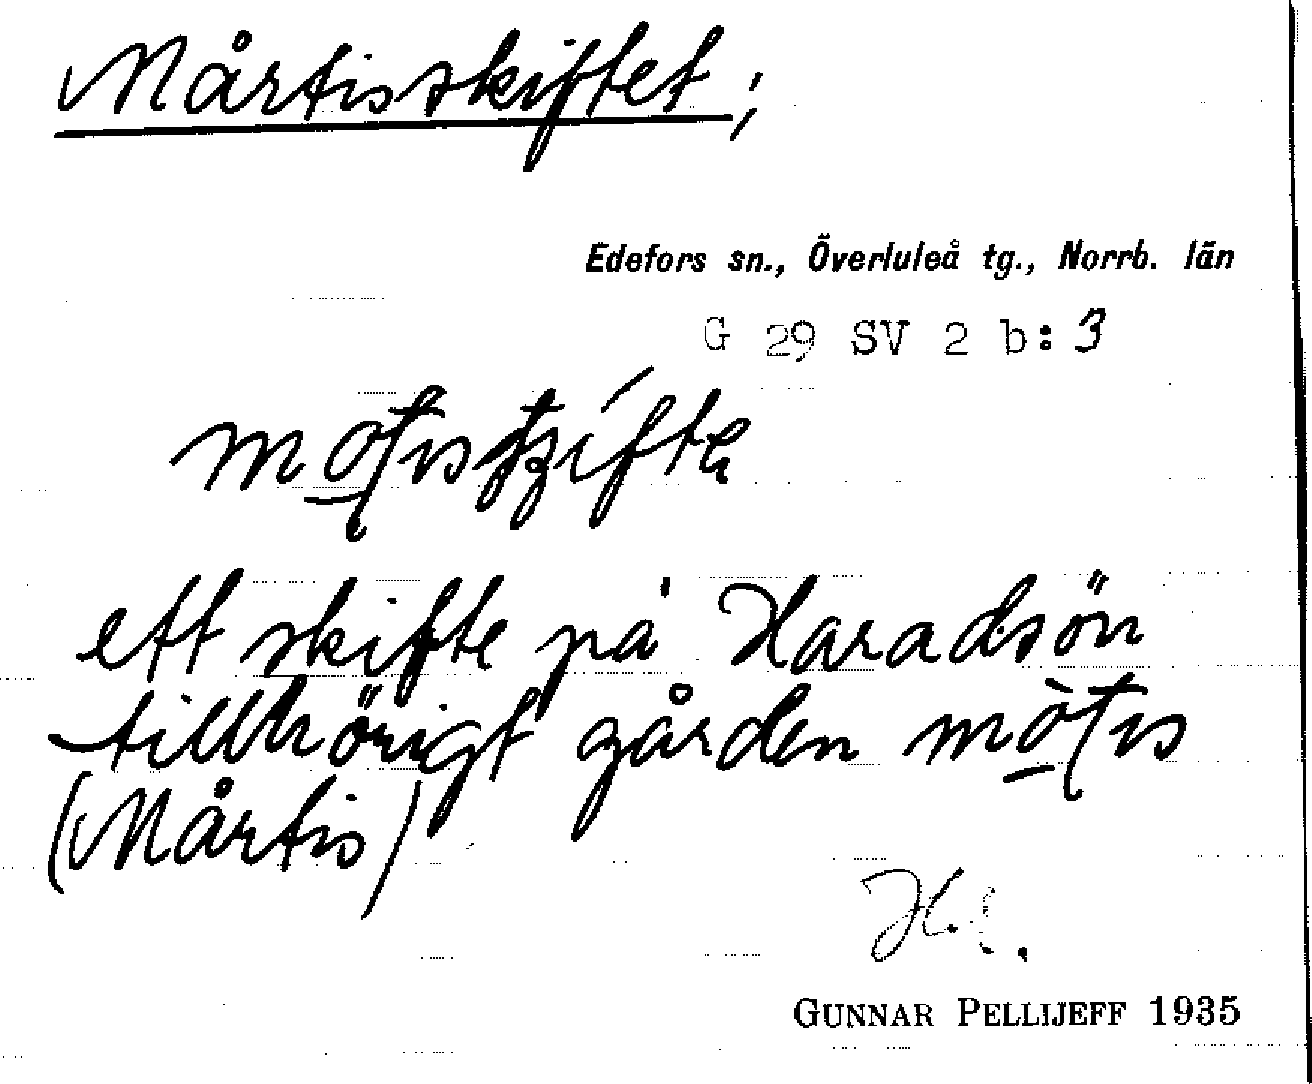 Mårtisskiftet;
Edefors sn., Överluleå tg., Norrb. län
G 29 SV 2 b:3
ett skifte på Haradsön
tillhörigt gården
(Mårtis)
GUNNAR PELLIJEFF 1935